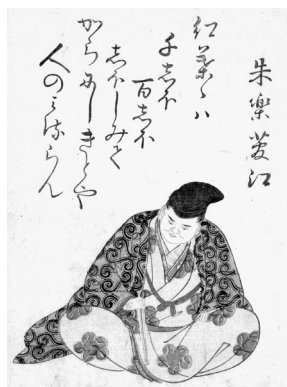 朱樂菅江
紅葉ゝハ
千しほ
百しほ
しほしみて
からにしきとや
人のみるらん